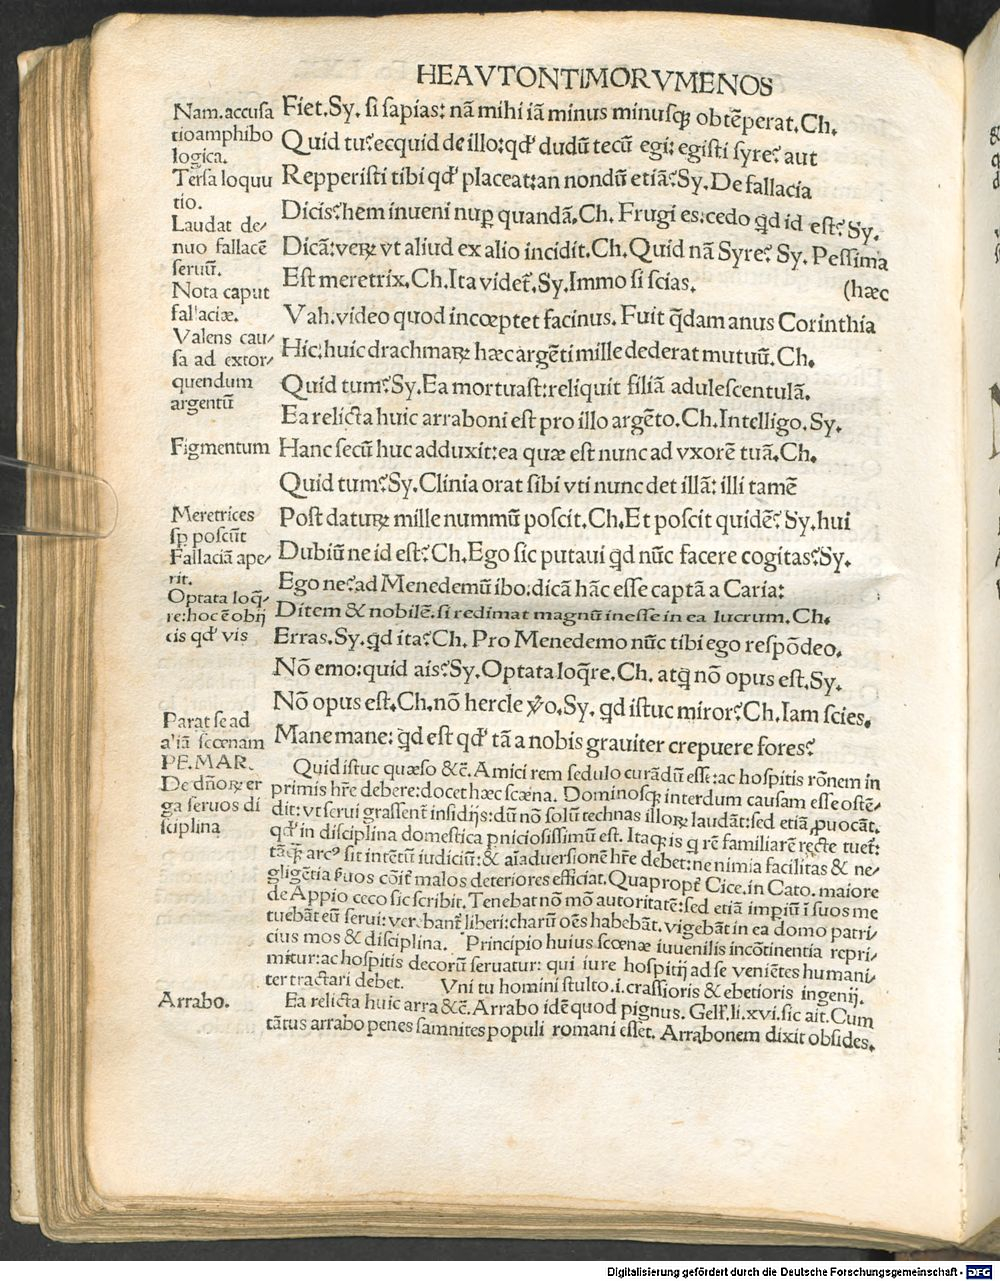 HEAVTONTIMORVMENOS
Nam.accusa
tioamphibo
logica.
Tersa loquu
tio.
Laudat de/
nuo fallacē
seruū.
Nota caput
fallaciæ.
Valens cau/
sa ad extor/
quendum
argentū
Figmentum
Meretrices
sp poscūt
Fallaciā ape/
rit.
Optata loq̄/
re:hoc ē obij
cis qd' vis
Parat se ad
aliā scœnam
PE.MAR.
De dñoꝝ er
ga seruos di
sciplina
Arrabo.
Fiet.Sy. si sapias: nā mihi iā minus minusqꝫ obtēperat.Ch.
Quid tu? ecquid de illo:qd' dudū tecū egi: egisti syre? aut
Repperisti tibi qd' placeat:an nondū etiā?Sy.De fallacia
Dicis? hem inueni nuꝑ quandā.Ch. Frugi es:cedo qd id est? Sy.
Dicā:veꝝ vt aliud ex alio incidit.Ch.Quid nā Syre? Sy. Pessima
Est meretrix.Ch.Ita videt̄.Sy.Immo si scias. (hæc
Vah.video quod incœptet facinus. Fuit q̄dam anus Corinthia
Hic:huic drachmaꝝ hæc argēti mille dederat mutuū.Ch.
Quid tum?Sy.Ea mortuast:reliquit filiā adulescentulā.
Ea relicta huic arraboni est pro illo argēto.Ch.Intelligo.Sy.
Hanc secū huc adduxit:ea quæ est nunc ad vxorē tuā.Ch.
Quid tum?Sy.Clinia orat sibi vti nunc det illā: illi tamē
Post datuꝝ mille nummū poscit.Ch.Et poscit quidē? Sy.hui
Dubiū ne id est? Ch.Ego sic putaui qd nūc facere cogitas?Sy.
Ego ne? ad Menedemū ibo:dicā hāc esse captā a Caria:
Ditem & nobilē.si redimat magnū inesse in ea lucrum.Ch.
Erras.Sy.qd ita?Ch. Pro Menedemo nūc tibi ego respōdeo.
Nō emo:quid ais?Sy.Optata loq̄re.Ch. atqꝫ nō opus est.Sy.
Nō opus est.Ch.nō hercle ꝟo.Sy. qd istuc miror?Ch.Iam scies.
Mane mane: qd est qd' tā a nobis grauiter crepuere fores?
Quid istuc quæso &c̄. Amici rem sedulo curādū esse:ac hospitis rōnem in
primis hr̄e debere:docet hæc scæna. Dominosqꝫ interdum causam esse ostē/
dit: vt serui grassent̄ insidijs:dū nō solū technas illoꝝ laudāt:sed etiā ꝓuocāt.
qd' in disciplina domestica ꝑniciosissimū est. Itaqꝫ is q rē familiarē recte tuet̄:
tāqꝫ arcꝰ sit intētū iudiciū:& aīaduersionē hr̄e debet:ne nimia facilitas & ne/
gligētia ẜuos cōit̄ malos deteriores efficiat.Quapropt̄ Cice.in Cato. maiore
de Appio ceco sic scribit. Tenebat nō mō autoritatē:sed etiā impiū ī suos me
tuebāt eū serui: verebant̄ liberi:charū oēs habebāt. vigebāt in ea domo patri/
cius mos & disciplina. Principio huius scœnæ iuuenilis incōtinentia repri/
mitur:ac hospitis decorū seruatur: qui iure hospitij ad se veniētes humani/
ter tractari debet. Vni tu homini stulto.i.crassioris & ebetioris ingenij.
Ea relicta huic arra &c̄. Arrabo idē quod pignus. Gell'.li.xvi.sic ait.Cum
tātus arrabo penes samnites populi romani esset. Arrabonem dixit obsides.
Digitalisierung gefördert durch die Deutsche Forschungsgemeinschaft - DFG